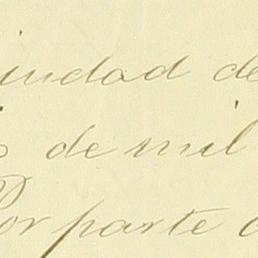 iudad de
de mil
Por parte